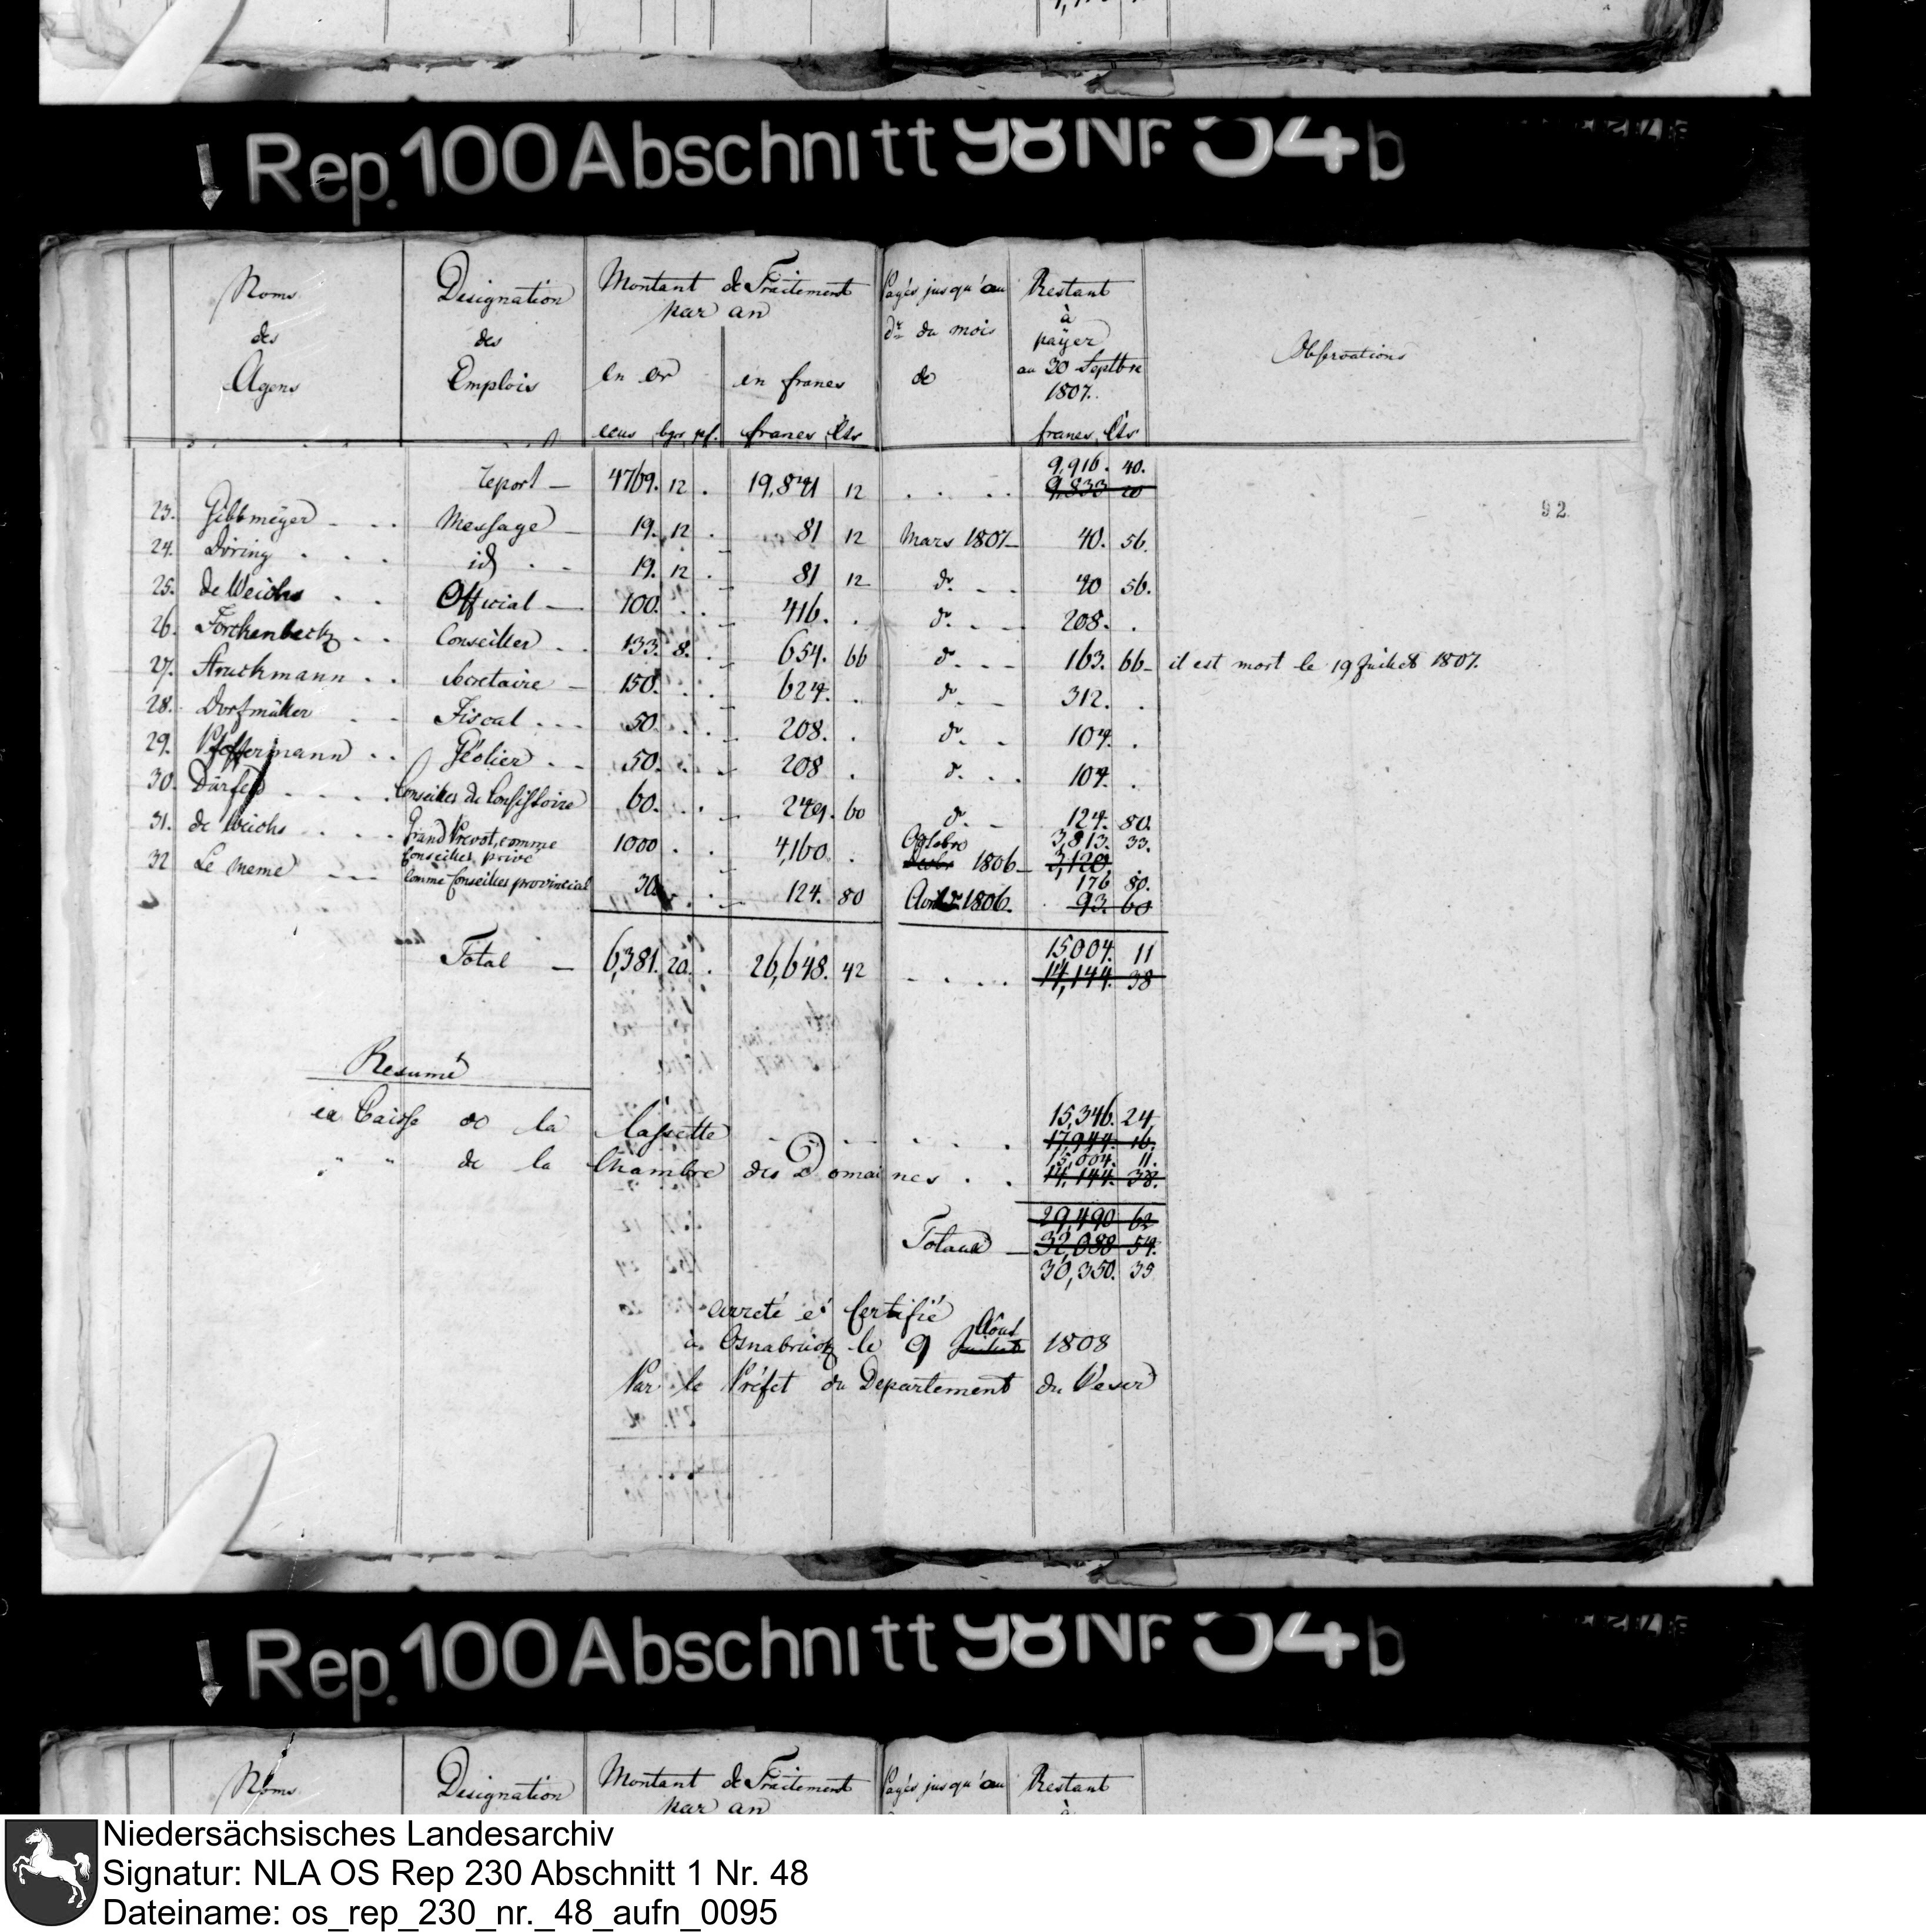 Rep. 100 Abschnitt 98 Nr. 54 b
Noms des Agens
Designation des Emplois
Montant de Traitement par an
en or
en francs
ecus bgr pf.
francs Cts
Payés jusqu'au dr du mois de
Restant à payer au 30 Septbre 1807.
francs Cts
Observations
92
report — 4769. 12 . 19,841 12 . . . . 9,916. 40.
9,833 20
23. Gibbmeyer - . . Message — 19. 12 . 81 12 Mars 1807 — 40. 56.
24. Döring . . . id . - 19. 12 . 81 12 dr. - . 40 56.
25. de Weichs . . Official — 100. . . 416. . dr. - - 208. .
26. Forckenbeck . . Conseiller . . 133. 8. . 654. 66 dr. . - 163. 66 - il est mort le 19 Juillet 1807.
27. Struckmann . . Secretaire — 150. . . 624. . dr. - 312. .
28. Dorfmüller . - Fiscal . . . 50. . . 208. . dr. . - 104. .
29. Pfoffermann . . Géolier . . 50. . . 208 . dr. . . 104. .
30. Dürfeld . . . . Conseiller du Consistoire 60. . . 249. 60 dr. - 124. 80.
31. de Weichs . . . Grand Prevot, comme Conseiller privé 1000 . . 4,160 . Octobre 1806 — 3,813. 33.
3,120.
32 Le meme - - - Comme Conseiller provincial 30 . . 124. 80 1806. 176 80.
93. 60
Total — 6,381. 20. . 26,648. 42 - . . . 15,004. 11
14,144. 38
Resumé
ex Caisse de la Cassette - . - . . . 15,346. 24,
17,944. 16.
" " de la Chambre des Domaines . . 15,004. 11.
14,144. 38.
29,490 62
Totaux — 32,088 54.
30,350. 35
arreté et Certifié
à Osnabruck le 9 Juillet Aôut 1808
Par le Préfet du Departement du Weser
Rep. 100 Abschnitt 98 Nr. 54 b
Noms
Designation
Montant de Traitement
par an
Payés jusqu'au
Restant
à
Niedersächsisches Landesarchiv
Signatur: NLA OS Rep 230 Abschnitt 1 Nr. 48
Dateiname: os_rep_230_nr._48_aufn_0095